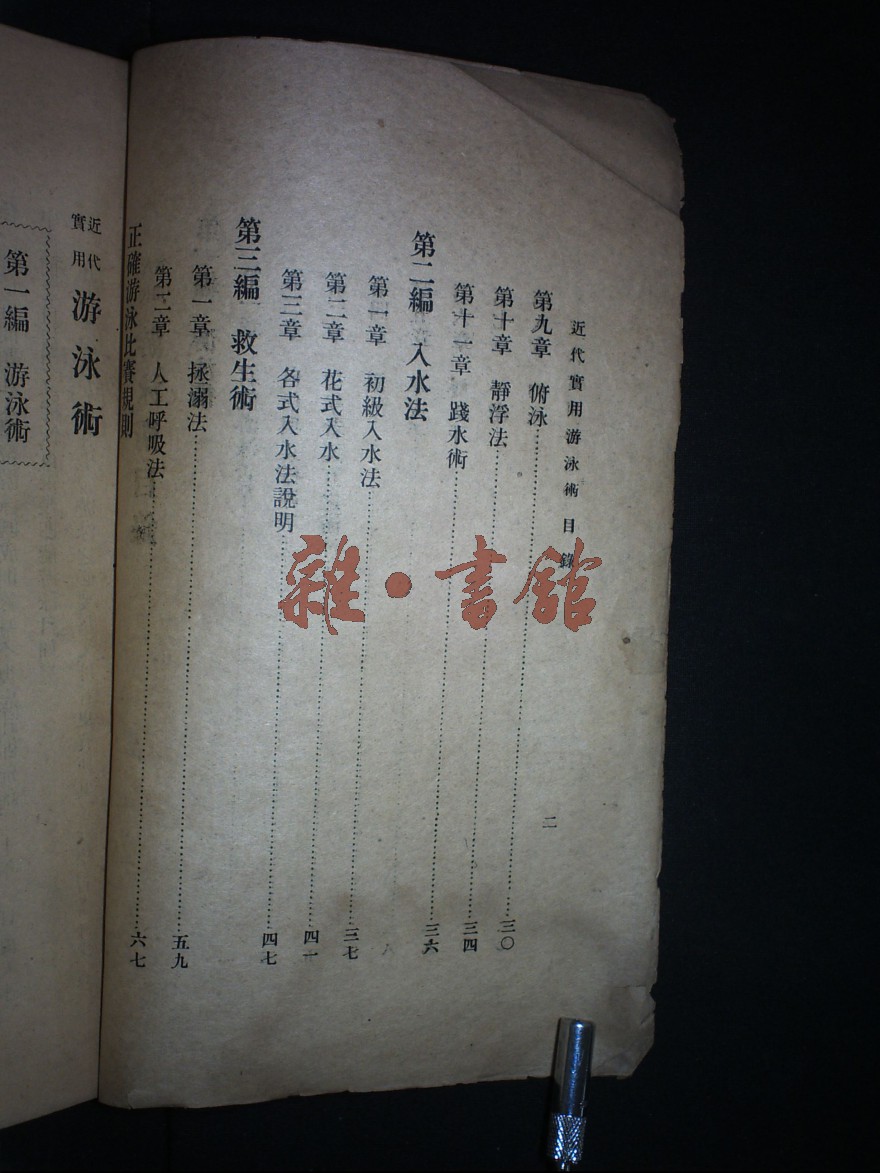 近代實用游泳術目錄
二
第九章 俯泳……三〇
第十章 靜浮法……三四
第十一章 踐水術……三六
第二編 入水法
第一章 初級入水法……三七
第二章 花式入水……四一
第三章 各式入水法說明……四七
第三編 救生術
第一章 拯溺法……五九
第二章 人工呼吸法……六七
正確游泳比賽規則
近代實用 游泳術
第一編 游泳術
雜·書館